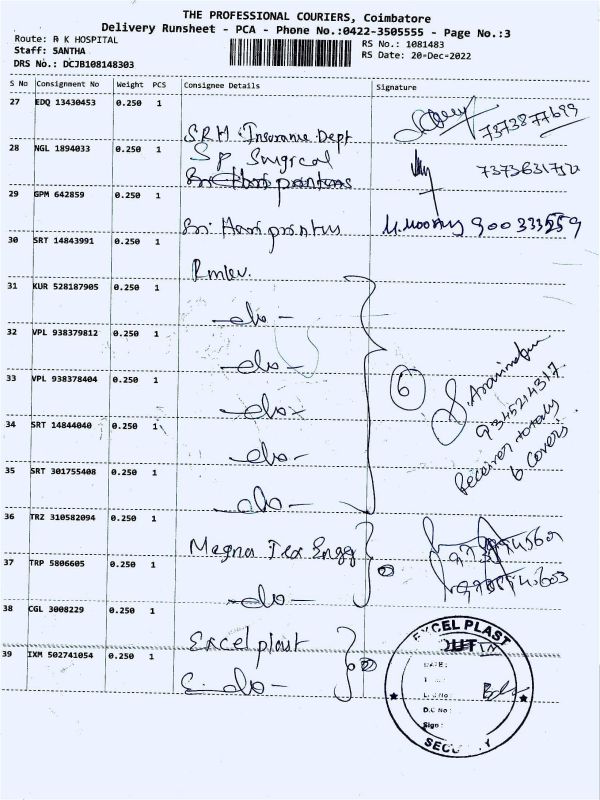 THE PROFESSIONAL COURIERS, Coimbatore
Delivery Runsheet - PCA - Phone No.:0422-3505555 - Page No.:3
Route: R K HOSPITAL
Staff: SANTHA
DRS No.: DCJB108148303
RS No.: 1081483
RS Date: 20-Dec-2022
S No Consignment No Weight PCS Consignee Details Signature
27 EDQ 13430453 0.250 1
SRM Insurance Dept
7373877699
28 NGL 1894033 0.250 1
SP Surgical
Sri Hari printers
7373631752
29 GPM 642859 0.250 1
Sri Hari printers
900333259
30 SRT 14843991 0.250 1
31 KUR 528187905 0.250 1
-do-
32 VPL 938379812 0.250 1
-do-
33 VPL 938378404 0.250 1
-do-
6
9345214317
Receiver totaly
6 covers.
34 SRT 14844040 0.250 1
-do-
35 SRT 301755408 0.250 1
-do-
36 TRZ 310582094 0.250 1
Magna Tex Engg
37 TRP 5806605 0.250 1
-do-
38 CGL 3008229 0.250 1
Excel plast
39 IXM 502741054 0.250 1
-do-
EXCEL PLAST
OUT
DATE:
D.C No:
Sign: